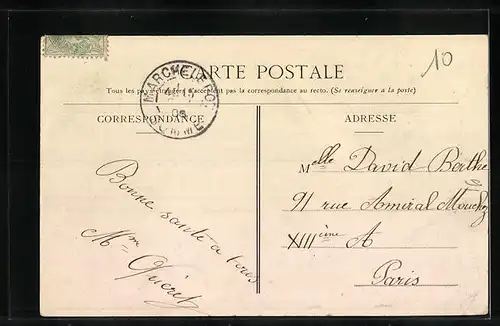 10
CARTE POSTALE
Tous les pays étrangers n'acceptent pas la correspondance au recto. (Se renseigner à la poste)
CORRESPONDANCE
ADRESSE
MARCHE
ORNE
Melle David Berthe
91 rue Amiral Mouchez
XIIIème A
Paris
Bonne santé à tous
Mme Quéret